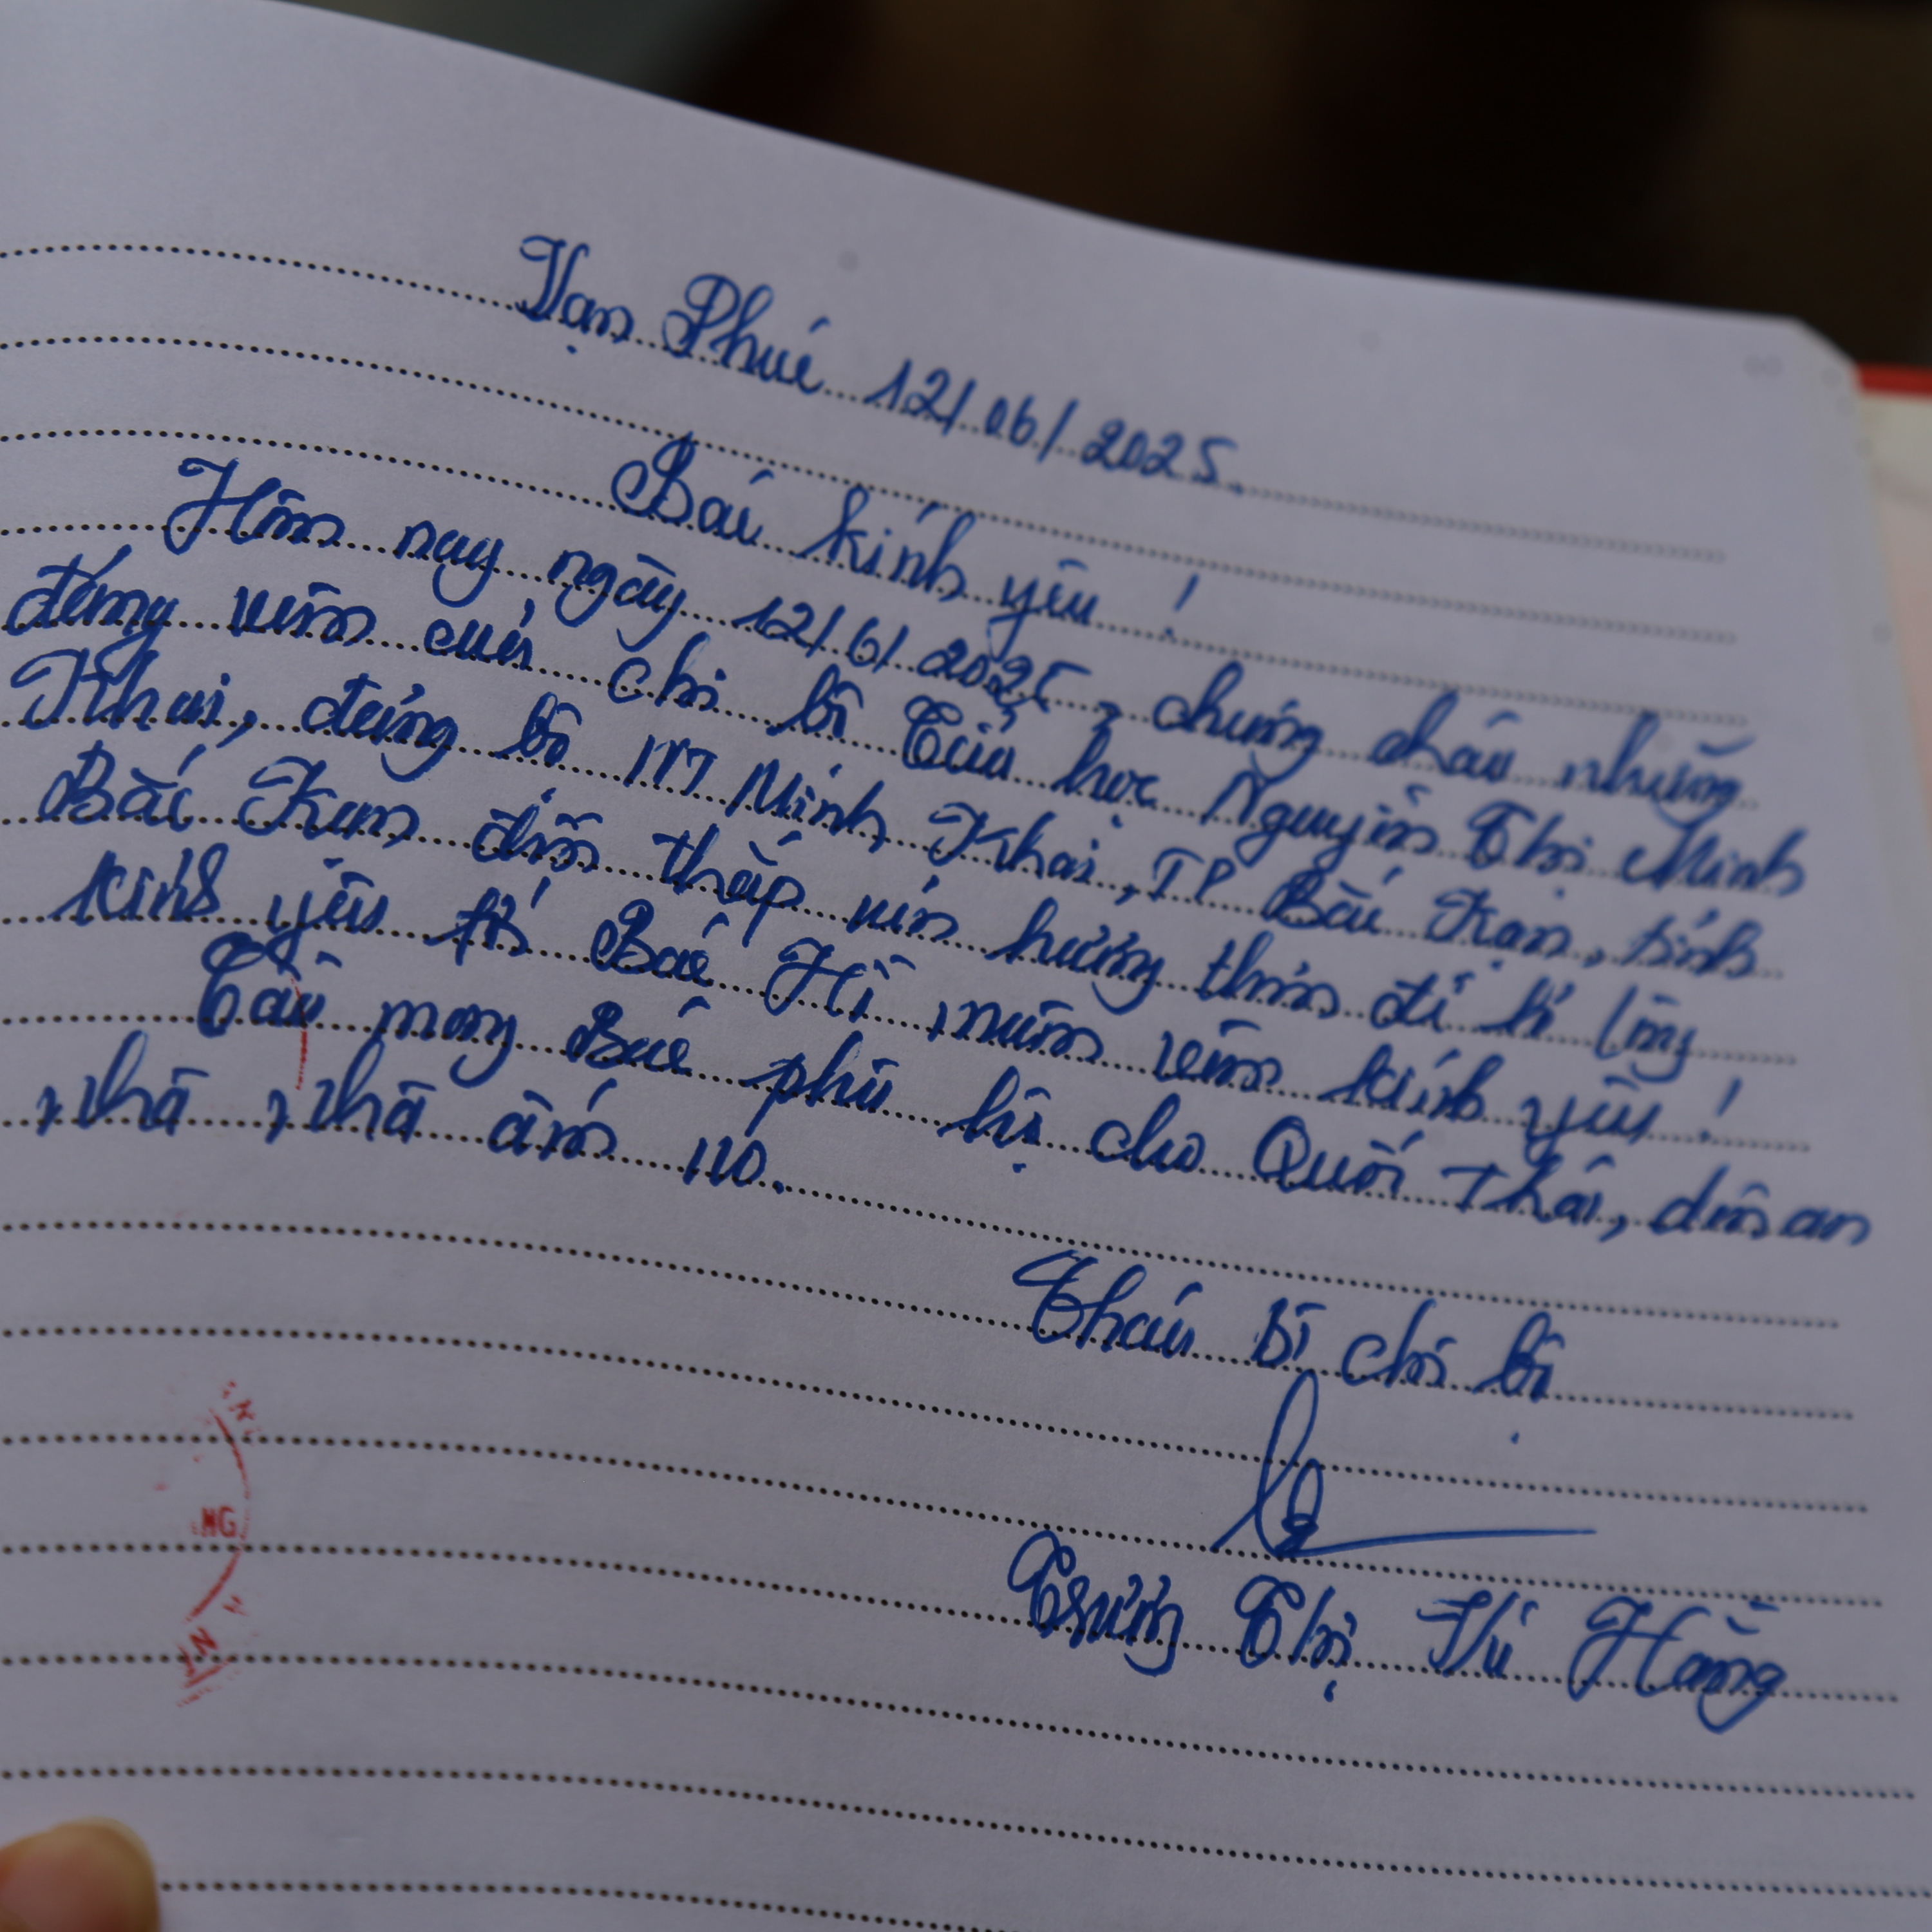 Vạn Phúc 12/06/2025.
Bác kính yêu!
Hôm nay ngày 12/6/2025, chúng cháu những
đảng viên của chi bộ Tiểu học Nguyễn Thị Minh
Khai, đảng bộ P Minh Khai, TP Bắc Kạn, tỉnh
Bắc Kạn đến thắp nén hương thơm để lòng
kính yêu tới Bác Hồ muôn vàn kính yêu!
Cầu mong Bác phù hộ cho Quốc Thái, dân an
nhà nhà ấm no.
T/h bí chi bộ
Trương Thị Thu Hằng
NG
N